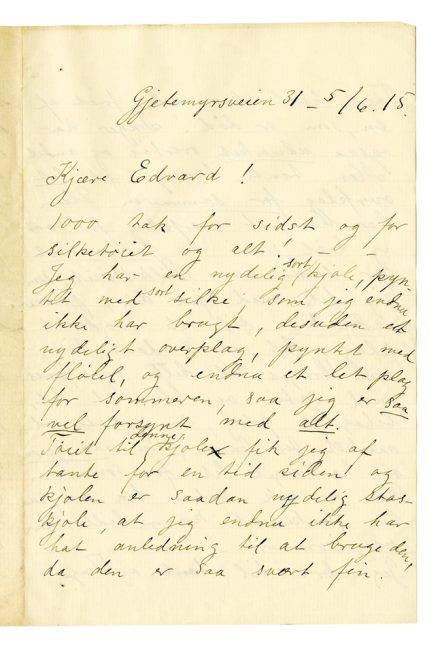 Gjetemyrsveien 31 – 5/6. 15.
Kjære Edvard !
1000 tak for sidst og for
silketøiet og alt! – –
Jeg har en nydelig sort kjole, pyn-
tet med sort silke, som jeg endnu
ikke har brugt, desuden et
nydeligt overplag, pyntet med
fløiel, og endnu et let plag
for sommeren, saa jeg er saa
vel forsynt med alt.
Tøiet til denne kjole fik jeg af
tante for en tid siden og
kjolen er saadan nydelig stas-
kjole, at jeg endnu ikke har
hat anledning til at bruge den,
da den er saa svært fin.